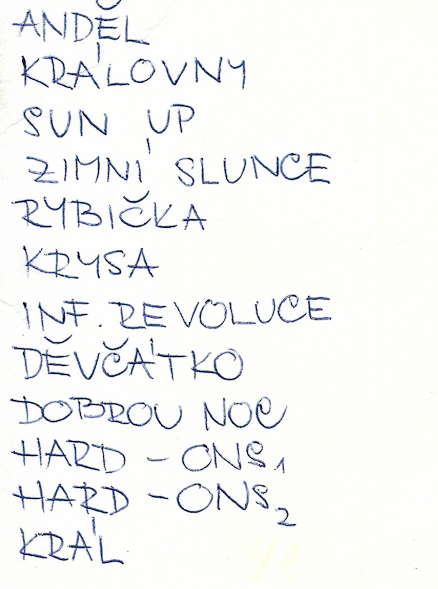 ANDĚL
KRÁLOVNY
SUN UP
ZIMNÍ SLUNCE
RYBIČKA
KRYSA
INF. REVOLUCE
DĚVČÁTKO
DOBROU NOC
HARD - ONS 1
HARD - ONS 2
KRÁL